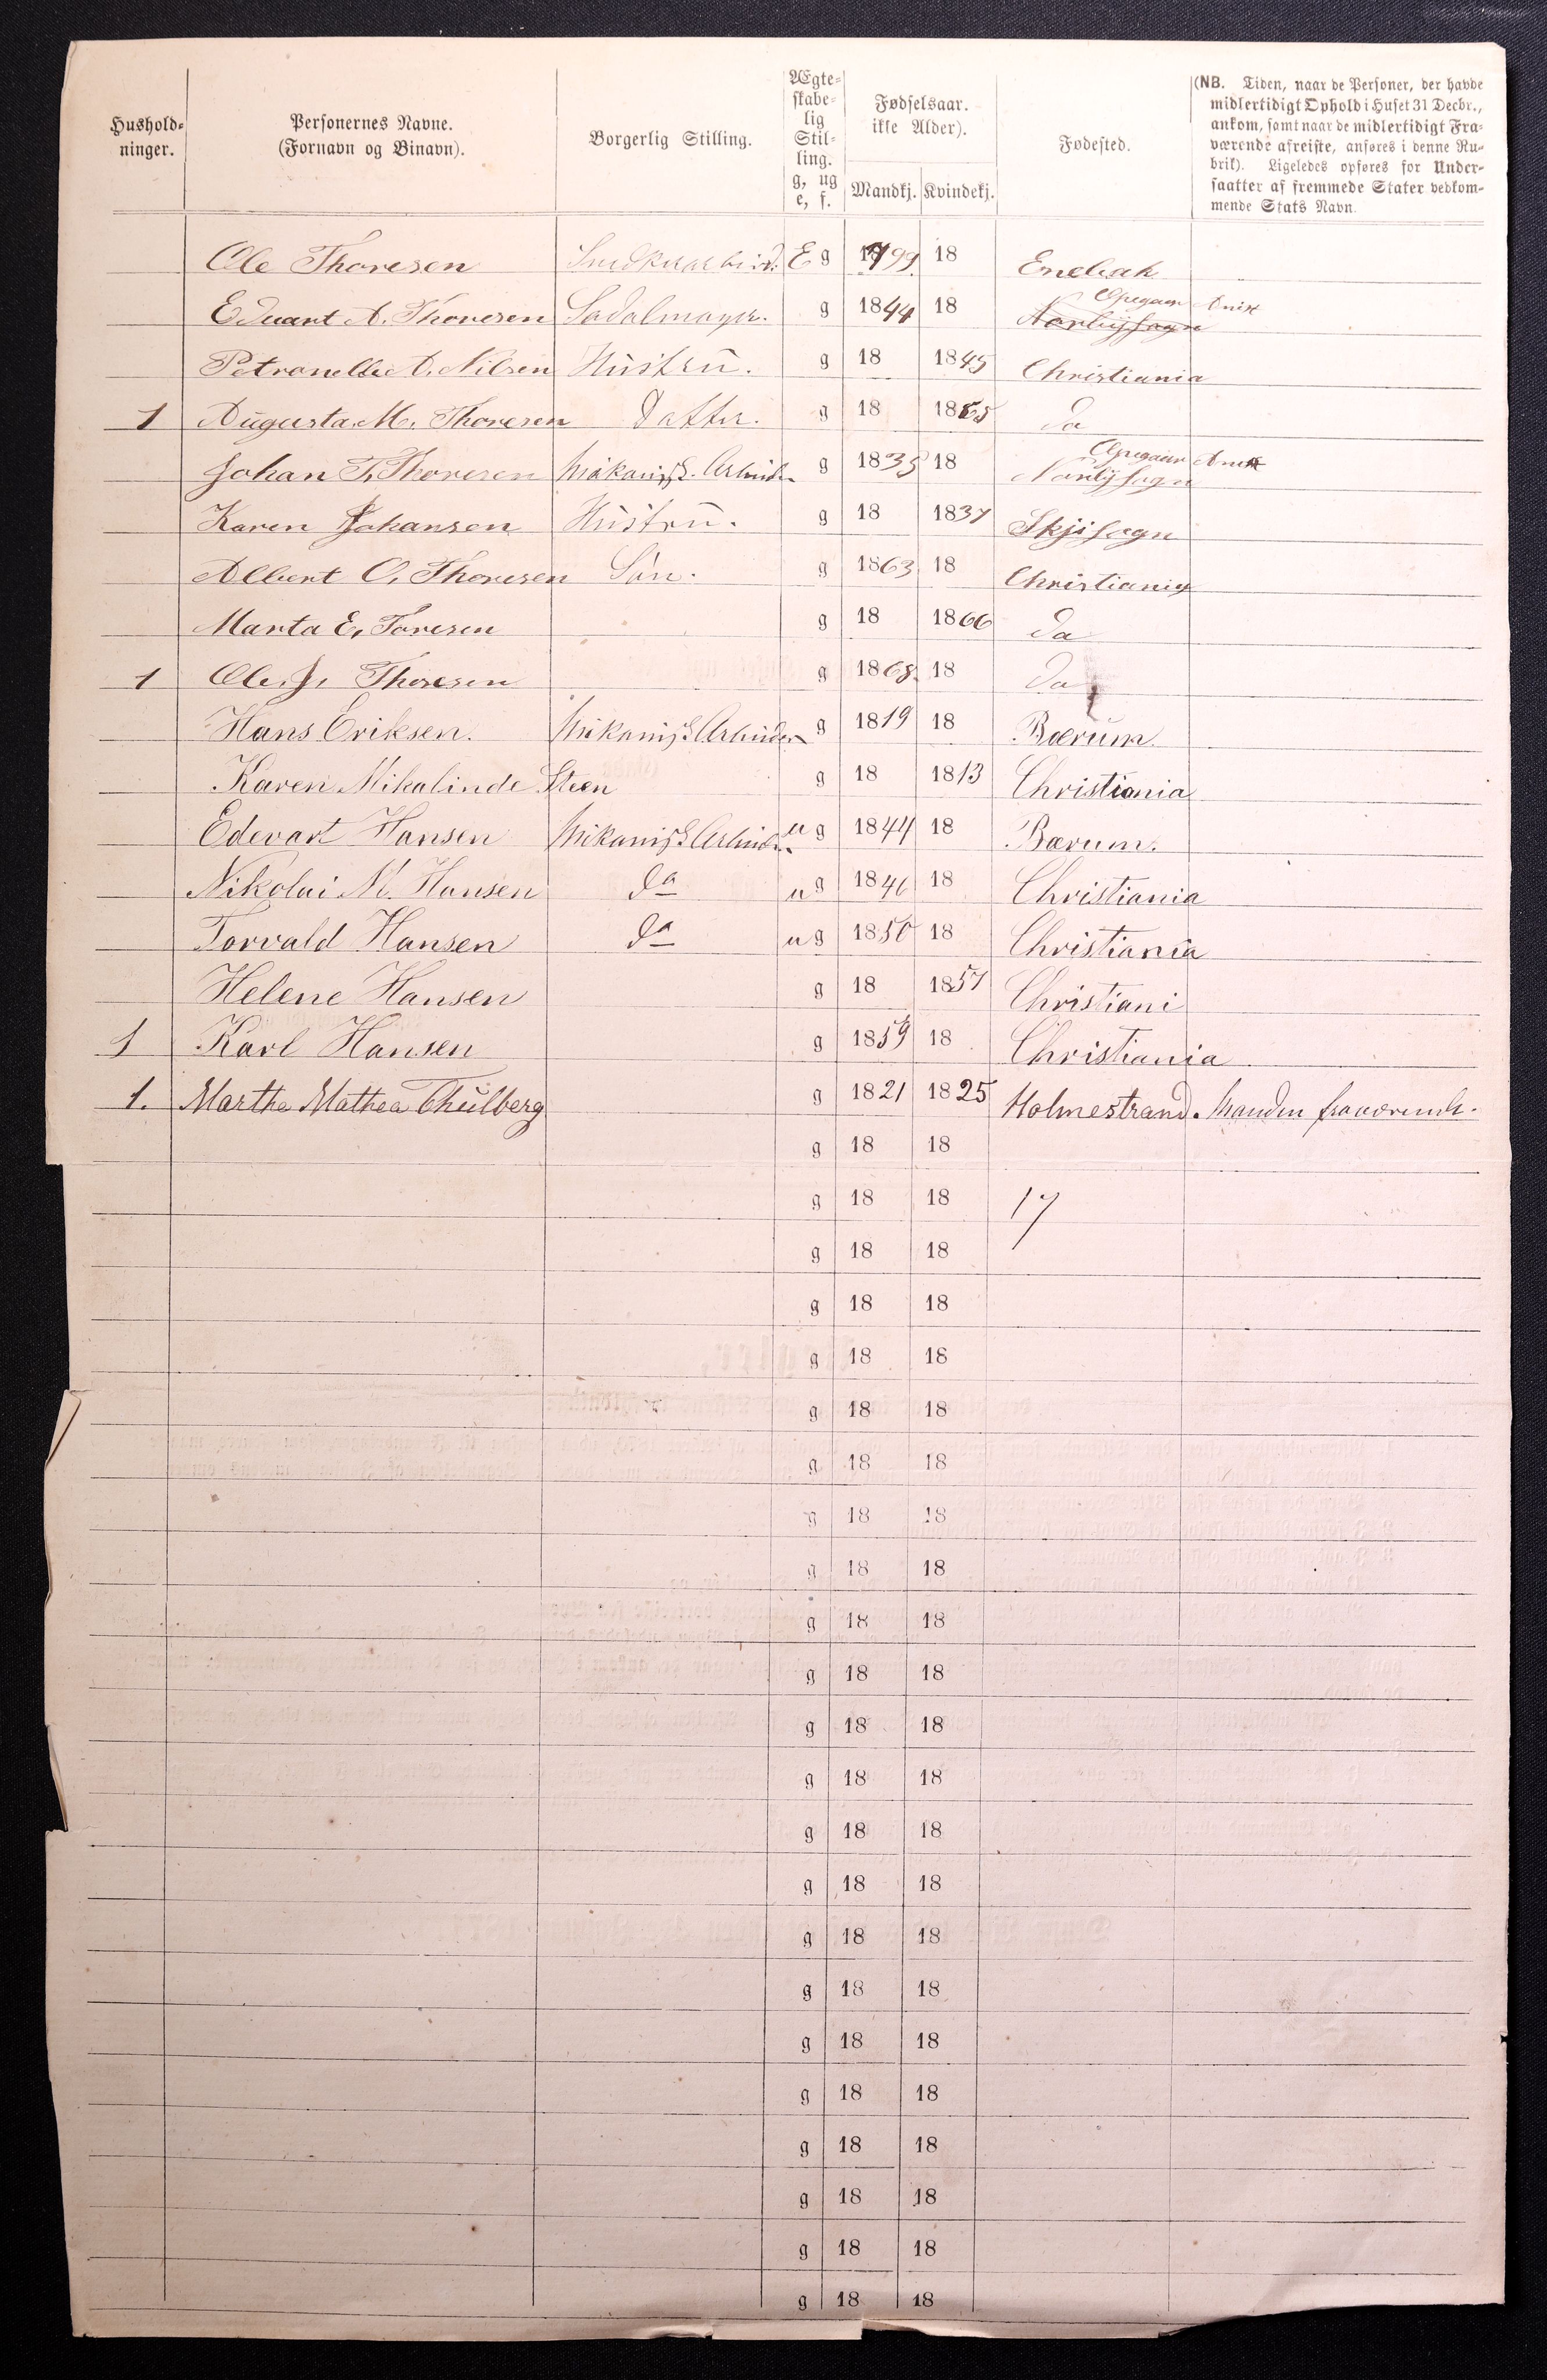 Hushold-
ninger.
Personernes Navne.
(Fornavn og Binavn).
Borgerlig Stilling.
Ægte-
skabe-
lig
Stil-
ling.
g, ug
e, f.
Fødselsaar.
ikke Alder).
Mandkj. Kvindekj.
Fødested.
(NB. Tiden, naar de Personer, der havde
midlertidigt Ophold i Huset 31 Decbr.,
ankom, samt naar de midlertidigt Fra-
værende afreiste, anføres i denne Ru-
brik). Ligeledes opføres for Under-
saatter af fremmede Stater vedkom-
mende Stats Navn.
Ole Thoresen Snedkerarbeid. E g 1799 18 Enebak
Eduart A. Thoresen Sadalmager. g 1844 18 Opegaar Anix Norbysogn
Petronelle A. Nilsen Hustru. g 18 1845 Christiania
1 Augusta M. Thoresen Datter. g 18 1865 Do
Johan T. Thoresen Mekanisk Arbeider g 1835 18 Opegaar Anix Norbysogn
Karen Johansen Hustru. g 18 1837 Skjisogn
Albert O. Thoresen Sön. g 1863 18 Christiania
Marta E. Toresen g 18 1866 do
1 Ole J. Thoresen g 1868 18 Do
Hans Eriksen. Mekanisk Arbeider g 1819 18 Bærum
Karen Mikalinde Steen g 18 1813 Christiania
Edevart Hansen Mekanisk Arbeider u g 1844 18 Bærum.
Nikolai M. Hansen do u g 1846 18 Christiania
Torvald Hansen do u g 1850 18 Christiania
Helene Hansen g 18 1857 Christiani
1 Karl Hansen g 1859 18 Christiania
1. Marthe Mathea Thulberg g 1821 1825 Holmestrand. Manden fraværende.
g 18 18
g 18 18 17
g 18 18
g 18 18
g 18 18
g 18 18
g 18 18
g 18 18
g 18 18
g 18 18
g 18 18
g 18 18
g 18 18
g 18 18
g 18 18
g 18 18
g 18 18
g 18 18
g 18 18
g 18 18
g 18 18
g 18 18
g 18 18